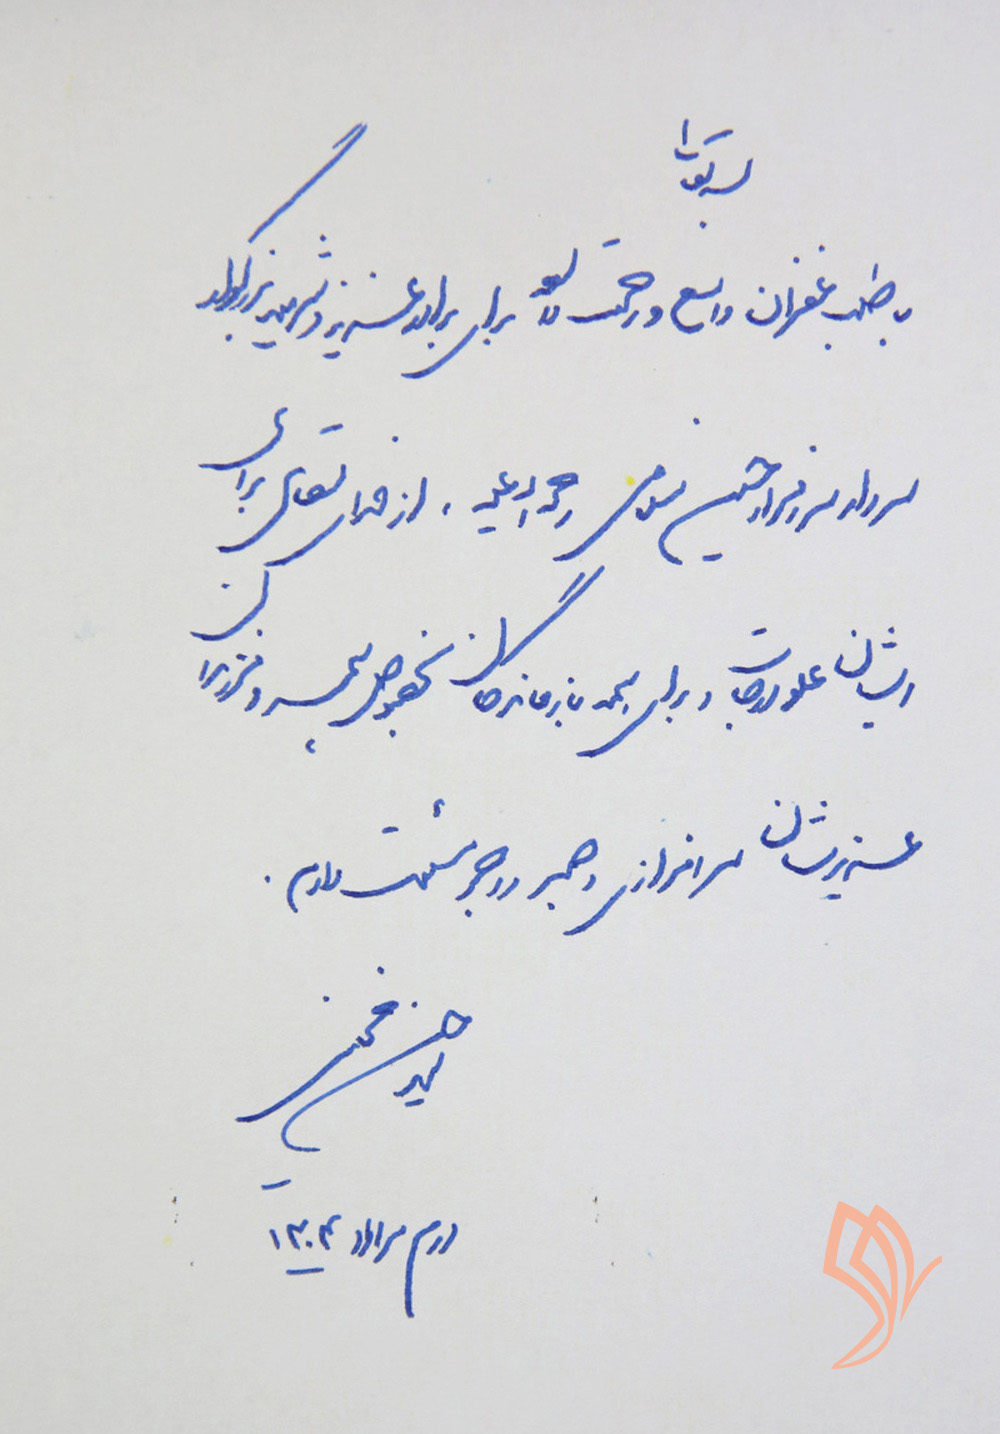 بسمه تعالی
با طلب غفران واسع و رحمت واسعه برای برادر عزیز و شهید بزرگوار
سردار سرافراز حسین سلامی رحمة‌الله علیه، از خدای متعال برای
ایشان علو درجات و برای همه بازماندگان بخصوص همسر و فرزندان
عزیزشان سرافرازی و صبر و اجر مسئلت دارم.
سید حسن خمینی
دوم مرداد ۱۴۰۴